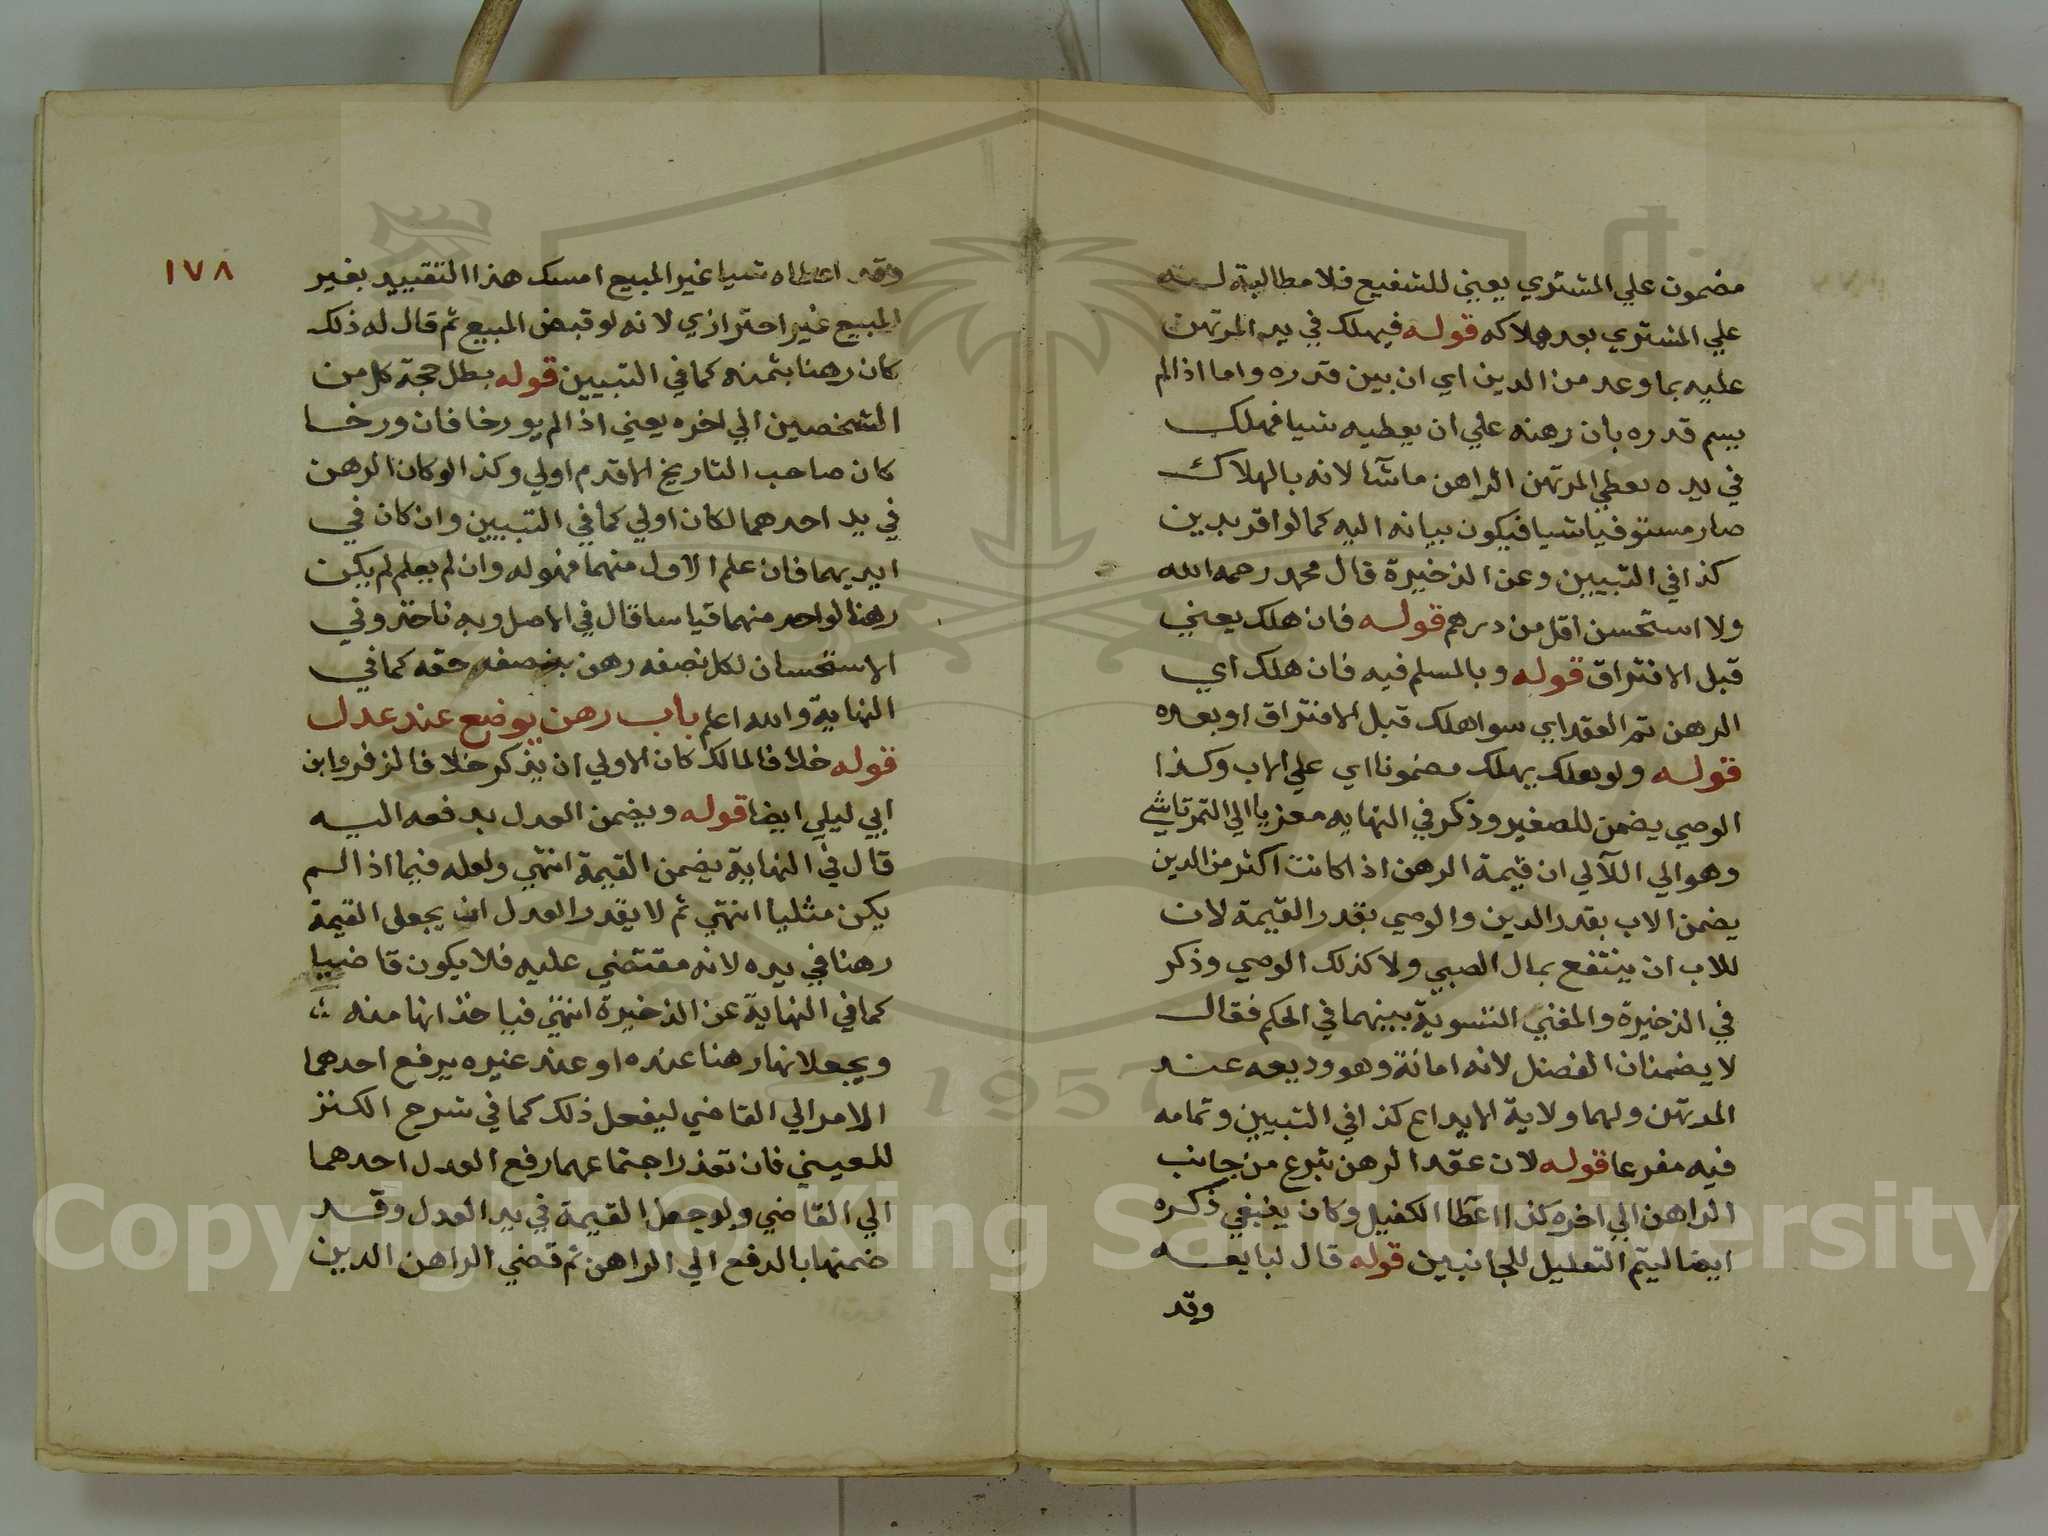 مضمون علي المشتري يعني للشفيع فلا مطالبة له
علي المشتري بعد هلاكه قوله فيهلك في يد المرتهن
عليه بما وعد من الدين اي ان بين قدره واما اذا لم
يسم قدره بان رهنه علي ان يعطيه شيا فهلك
في يده يعطي المرتهن الراهن ماشآ لانه بالهلاك
صار مستوفيا شيا فيكون بيانه اليه كما لو اقر بدين
كذا في التبيين وعن الذخيرة قال محمد رحمه الله
ولا استحسن اقل من درهم قوله فان هلك يعني
قبل الافتراق قوله وبالمسلم فيه فان هلك اي
الرهن تم العقد اي سوا هلك قبل الافتراق او بعده
قوله ولو بهلك يهلك مضمونا اي علي الاب وكذا
الوصي يضمن للصغير وذكر في النهايه معزيا الي التمرتاشي
وهو الي اللآلي ان قيمة الرهن اذا كانت اكثر من الدين
يضمن الاب بقدر الدين والوصي بقدر القيمة لان
للاب ان ينتفع بمال الصبي ولا كذلك الوصي وذكر
في الذخيرة والمغني التسوية بينهما في الحكم فقال
لا يضمنان الفضل لانه امانة وهو وديعه عند
المرتهن ولهما ولاية الايداع كذا في التبيين وتمامه
فيه مفرعا قوله لان عقد الرهن تبرع من جانب
الراهن الي اخره كذا اعطا الكفيل وكان ينبغي ذكره
ايضا ليتم التعليل للجانبين قوله قال لبايعه
وقد
١٧٨
وقد اعطاه شيا غير المبيع امسك هذا التقييد بغير
المبيع غير احترازي لانه لو قبض المبيع ثم قال له ذلك
كان رهنا بثمنه كما في التبيين قوله بطل حجة كل من
الشخصين الي اخره يعني اذا لم يورخا فان ورخا
كان صاحب التاريخ الاقدم اولي وكذا لو كان الرهن
في يد احدهما لكان اولي كما في التبيين وان كان في
ايديهما فان علم الاول منهما فهو له وان لم يعلم لم يكن
رهنا لواحد منهما قياسا قال في الاصل وبه ناخذ وفي
الاستحسان لكل نصفه رهن بنصف حقه كما في
النهاية والله اعلم باب رهن يوضع عند عدل
قوله خلافا لمالك كان الاولي ان يذكر خلافا لزفر وابن
ابي ليلي ايضا قوله ويضمن العدل بدفعه اليه
قال في النهاية يضمن القيمة انتهي ولعله فيما اذا لم
يكن مثليا انتهي ثم لا يقدر العدل ان يجعل القيمة
رهنا في يده لانه مقتضي عليه فلا يكون قاضيا
كما في النهاية عن الذخيرة انتهي فياخذانها منه
ويجعلانها رهنا عنده او عند غيره يرفع احدهما
الامر الي القاضي ليفعل ذلك كما في شرح الكنز
للعيني فان تعذر اجتماعهما رفع العدل احدهما
الي القاضي ولو جعل القيمة في يد العدل وقد
ضمنها بالدفع الي الراهن ثم قضي الراهن الدين
Copyright © King Saud University
1957